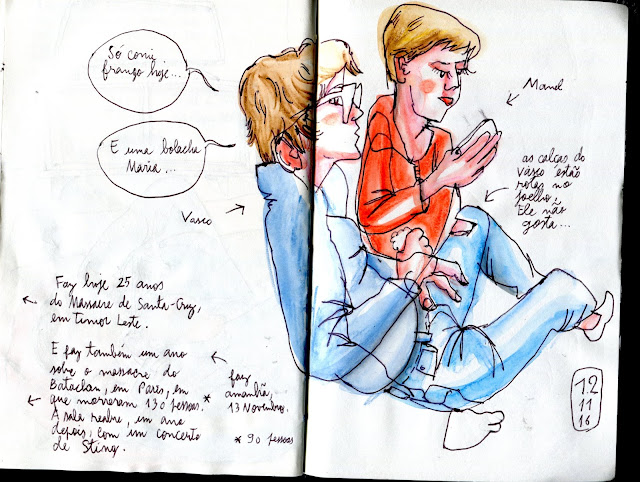 Só comi
frango hoje...
E uma bolacha
Maria...
Vasco
Manel
as calças do
Vasco estão
rotas no
joelho,
Ele não
gosta...
Faz hoje 25 anos
do Massacre de Santa-Cruz,
em Timor Leste.
E faz também um ano
sobre o massacre do
Bataclan, em Paris, em
que morreram 130 pessoas. *
A sala reabre, um ano
depois, com um concerto
de Sting.
faz
amanhã,
13 Novembro.
* 90 pessoas
12
11
16